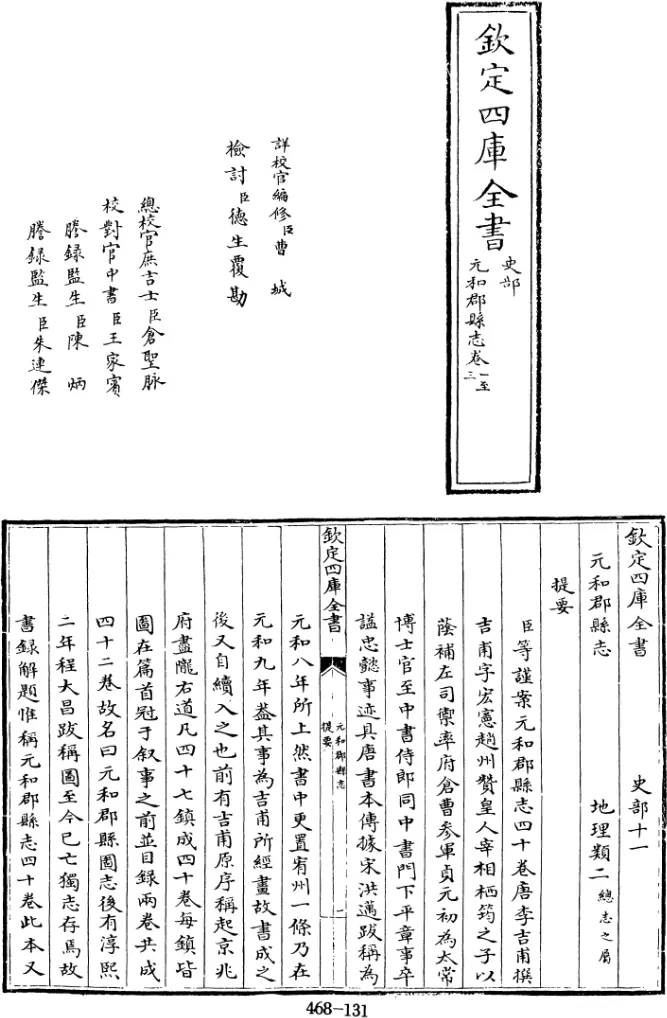 欽定四庫全書
史部
元和郡縣志卷一至三
詳校官編修臣曹城
檢討臣德生覆勘
總校官庶吉士臣倉聖脉
校對官中書臣王家賓
謄録監生臣陳炳
謄録監生臣朱連傑
欽定四庫全書 史部十一
元和郡縣志 地理類二總志之屬
提要
臣等謹案元和郡縣志四十卷唐李吉甫撰
吉甫字宏憲趙州贊皇人宰相栖筠之子以
蔭補左司禦率府倉曹參軍貞元初為太常
博士官至中書侍郎同中書門下平章事卒
諡忠懿事迹具唐書本傳據宋洪邁跋稱為
欽定四庫全書
元和郡縣志
提要
一
元和八年所上然書中更置宥州一條乃在
元和九年葢其事為吉甫所經畫故書成之
後又自續入之也前有吉甫原序稱起京兆
府盡隴右道凡四十七鎮成四十卷每鎮皆
圖在篇首冠于叙事之前並目録兩卷共成
四十二卷故名曰元和郡縣圖志後有淳熙
二年程大昌跋稱圖至今已亡獨志存焉故
書録解題惟稱元和郡縣志四十卷此本又
468-131